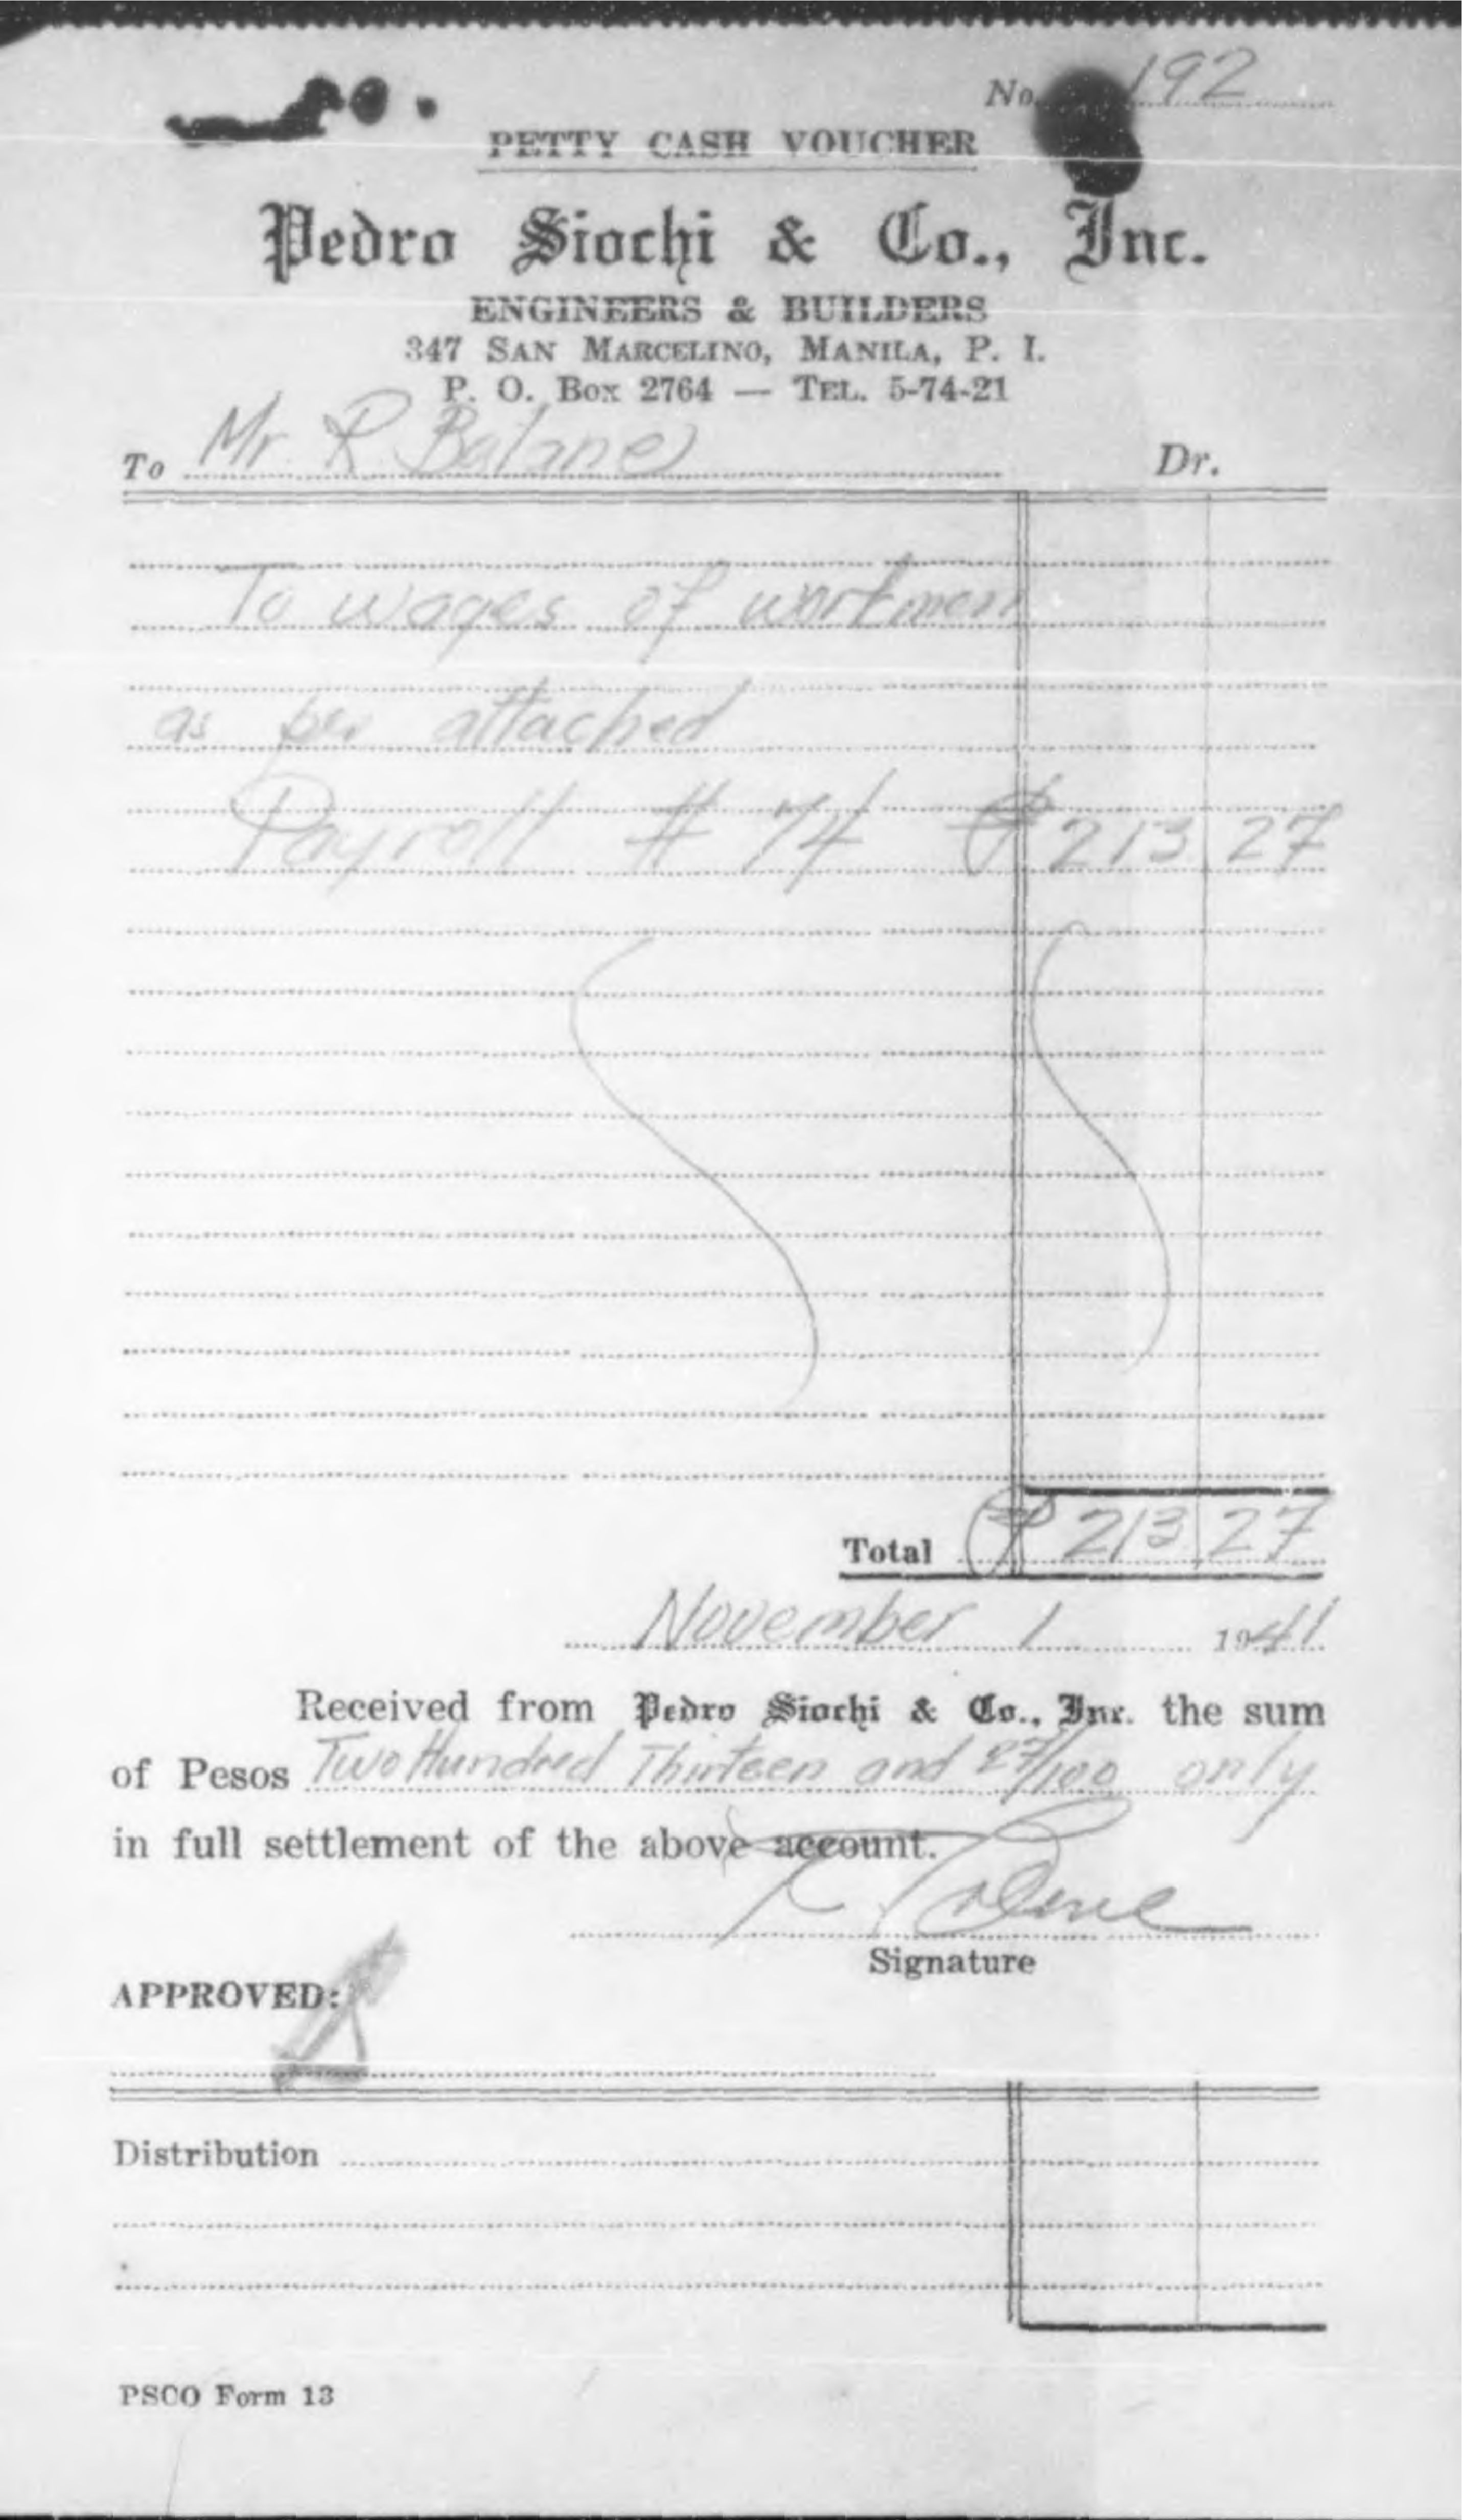 No. 192
PETTY CASH VOUCHER
Pedro Siochi & Co., Inc.
ENGINEERS & BUILDERS
347 SAN MARCELINO, MANILA, P. I.
P. O. Box 2764 — TEL. 5-74-21
To Mr. R. Dr.
To wages of workmen
as per attached
Payroll # 74 ₱ 213 27
Total ₱ 213 27
November 1 1941
Received from Pedro Siochi & Co., Inc. the sum
of Pesos Two Hundred Thirteen and 27/100 only
in full settlement of the above account.
Signature
APPROVED:
Distribution
PSCO Form 13